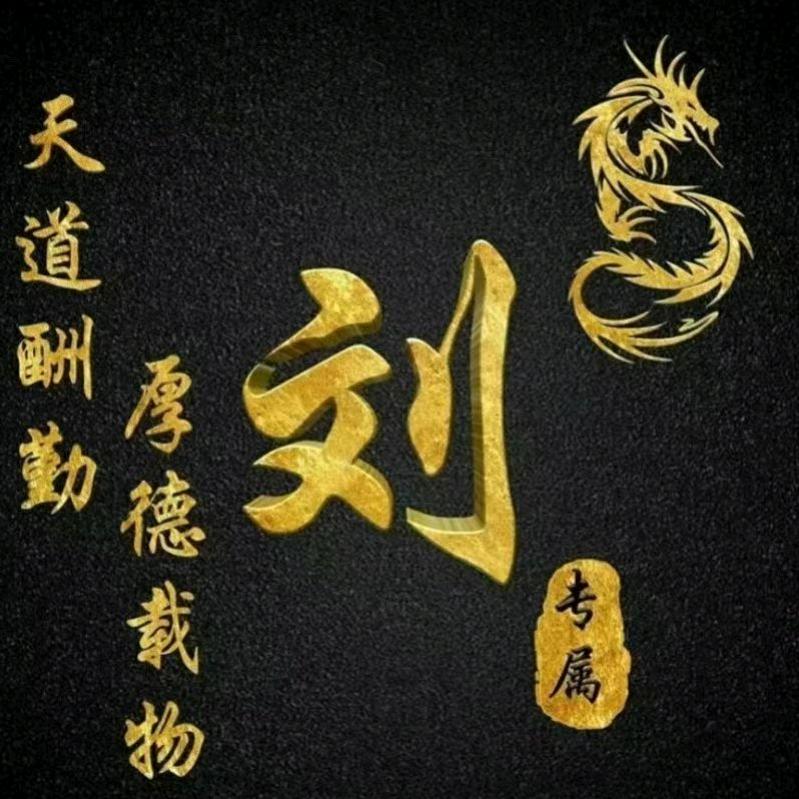 天道酬勤
厚德载物
刘
专属